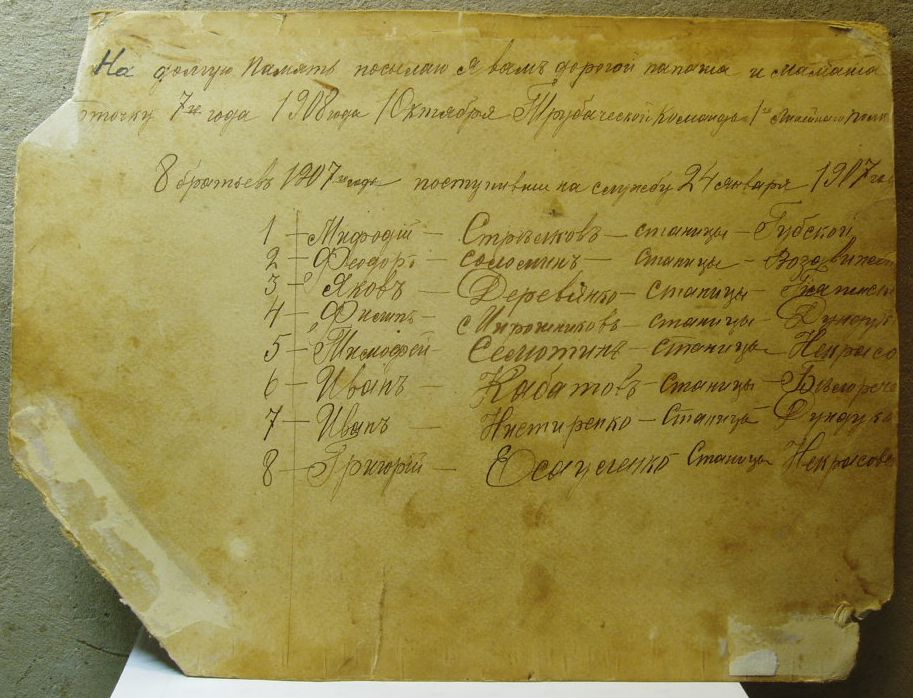 На долгую Память посылаю Я вамъ дорогой папаша и мамаша
рточку 7го года 1908 года 1 Октября Трубаческой Команды 1го Линейного полк
8 братьевъ 1907го года поступивши на службу 24 января 1907 го
1 – Мифодій – Стрѣлковъ – станицы – Губской
2 – Феодоръ – соломинъ – станицы –
3 – Яковъ – Деревянко – станицы –
4 – Филипъ – Мирошниковъ – станицы – Дундук
5 – Тимофей – Семютинъ – станицы – Некрасо
6 – Иванъ – Кабатовъ – станицы – Бѣлоречен
7 – Иванъ – Нистиренко – Станицы – Дундуко
8 – Григорій – Есауленко Станицы Некрасовс